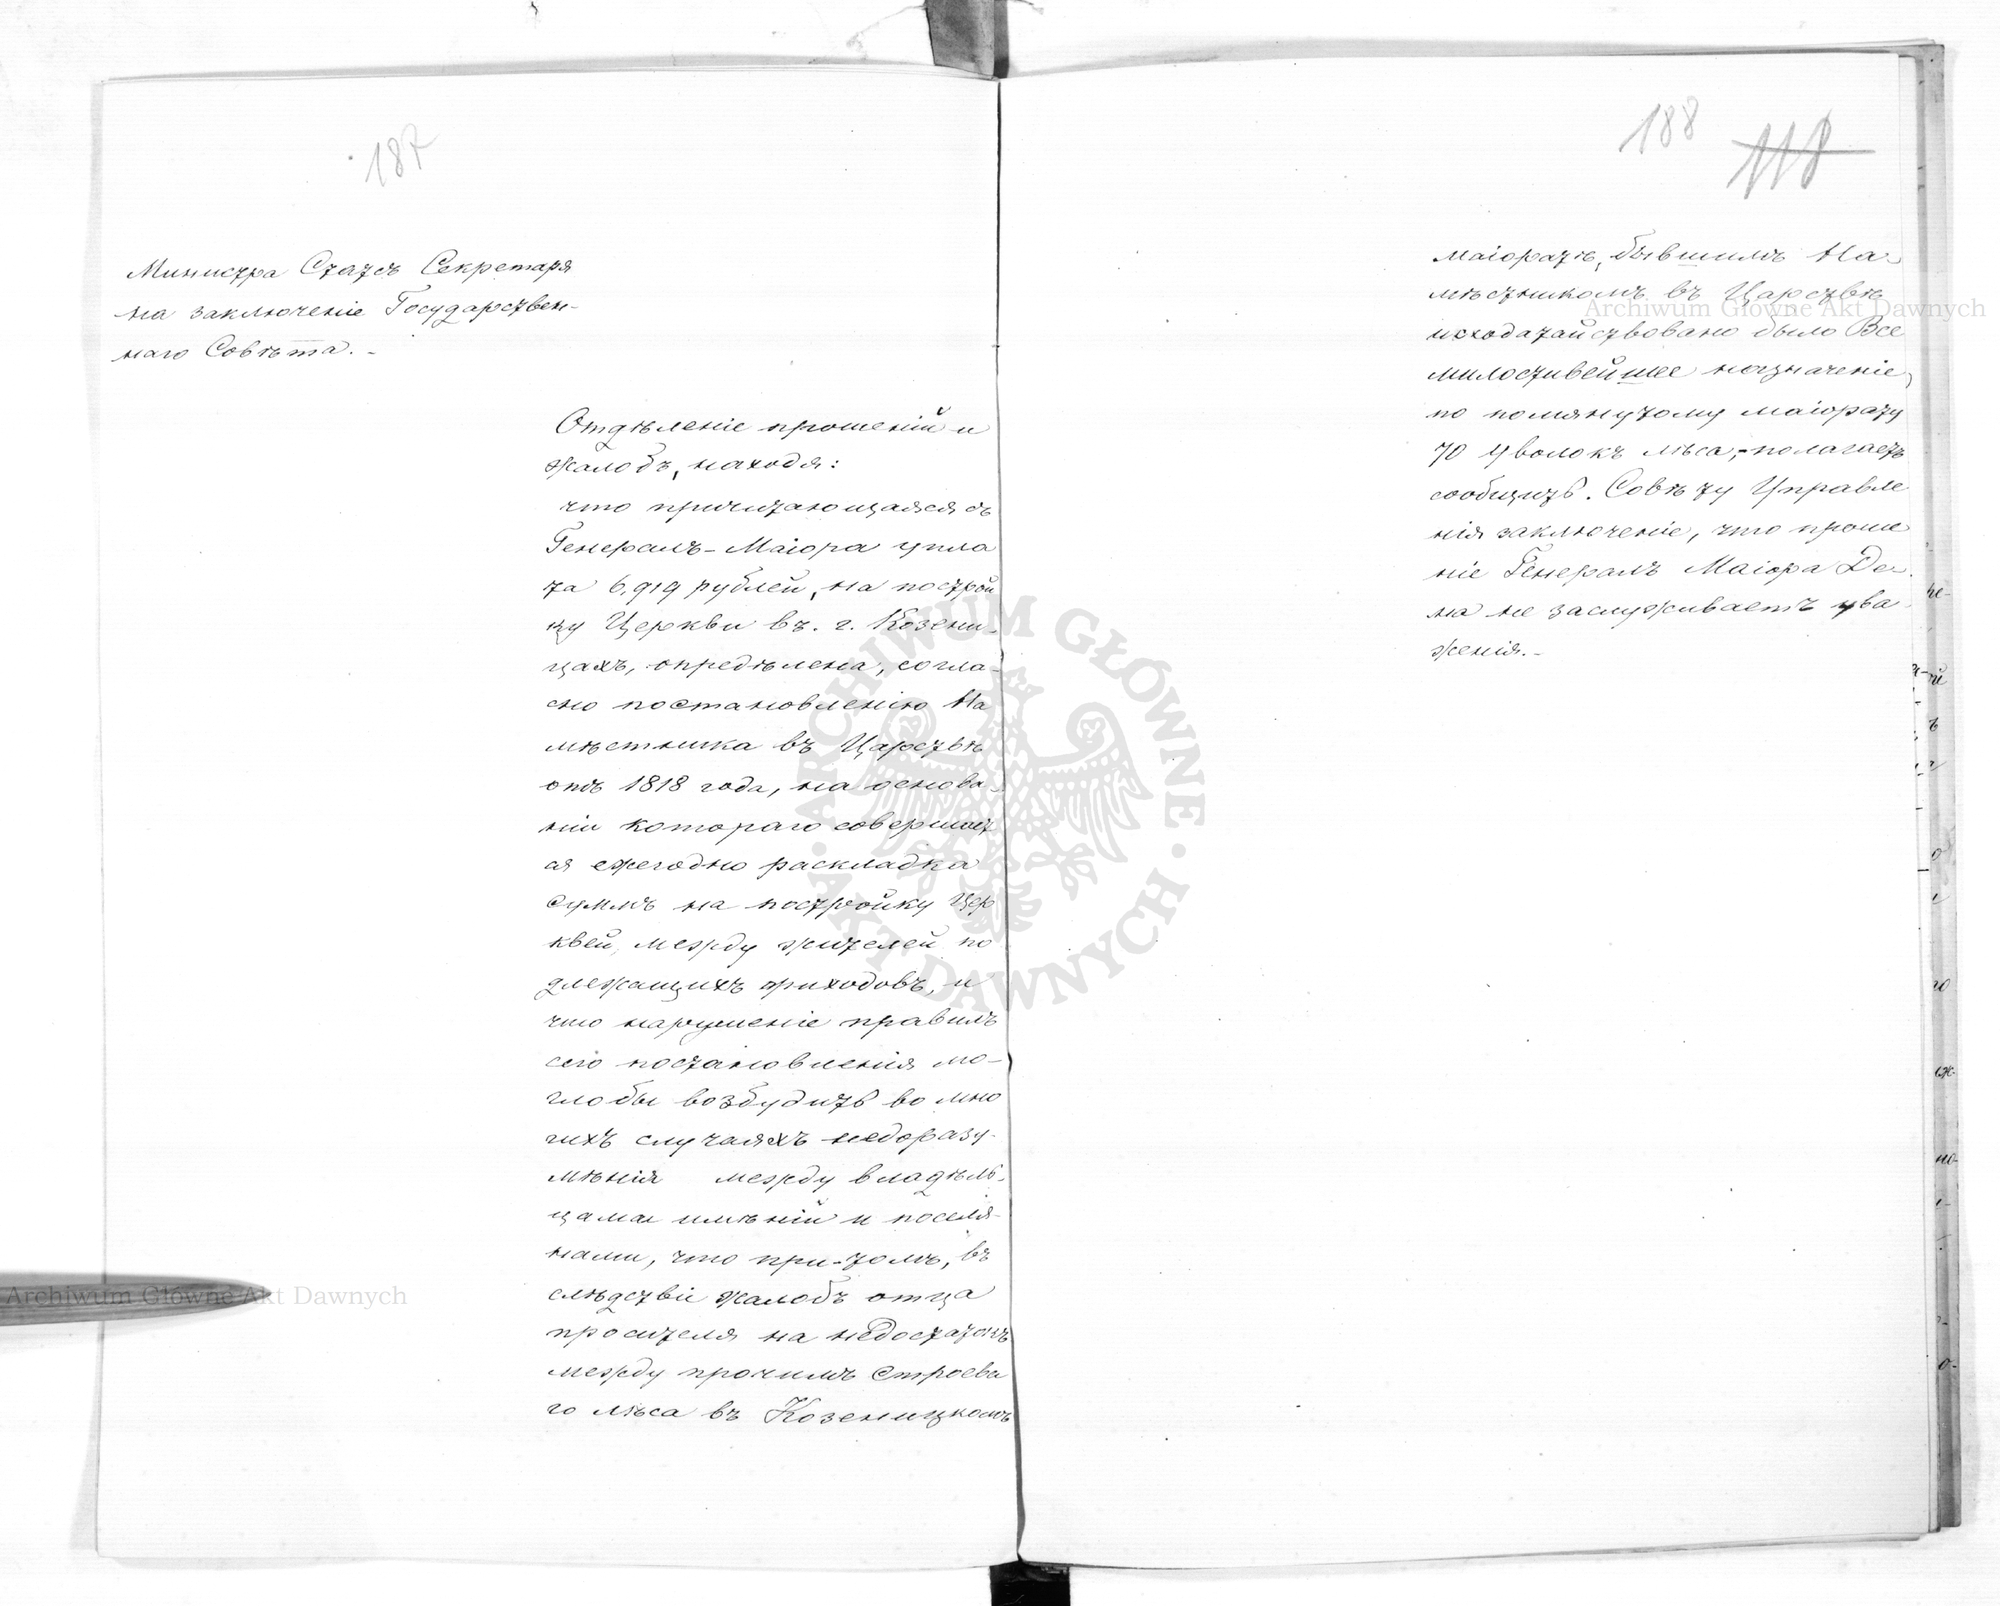 187
Министра Статсъ Секретаря
на заключеніе Государствен-
наго Совѣта. -
Отдѣленіе прошеній и
жалобъ, находя:
что причитающаяся съ
Генералъ-Маіора упла
та 6,919 рублей, на построй
ку Церкви въ. г. Козени-
цахъ, опредѣлена, согла-
сно постановленію На
мѣстника въ Царствѣ
отъ 1818 года, на основа-
ніи котораго совершает
ся ежегодно раскладка
суммъ на постройку Цер
квей, между жителей по
длежащихъ приходовъ, и
что нарушеніе правилъ
сего постановленія мо-
глобы возбудить во мно
гихъ случаяхъ недоразу-
мѣнія между владѣль-
цами имѣній и поселя-
нами, что при-томъ, въ
слѣдствіи жалобъ отца
просителя на недостатокъ
между прочимъ строева
го лѣса въ Козеницкомъ
188 118
маіоратѣ, бывшимъ На-
мѣстникомъ въ Царствѣ
исходатайствовано было Все
милостивейшее назначеніе,
по помянутому маіорату
70 Уволокъ лѣса,-полагаетъ
сообщить. Совѣту Управле
нія заключеніе, что проше
ніе Генералъ Маіора Де-
на не заслуживаетъ ува-
женія.-
Archiwum Główne Akt Dawnych
Archiwum Główne Akt Dawnych
ARCHIWUM GŁÓWNE AKT DAWNYCH